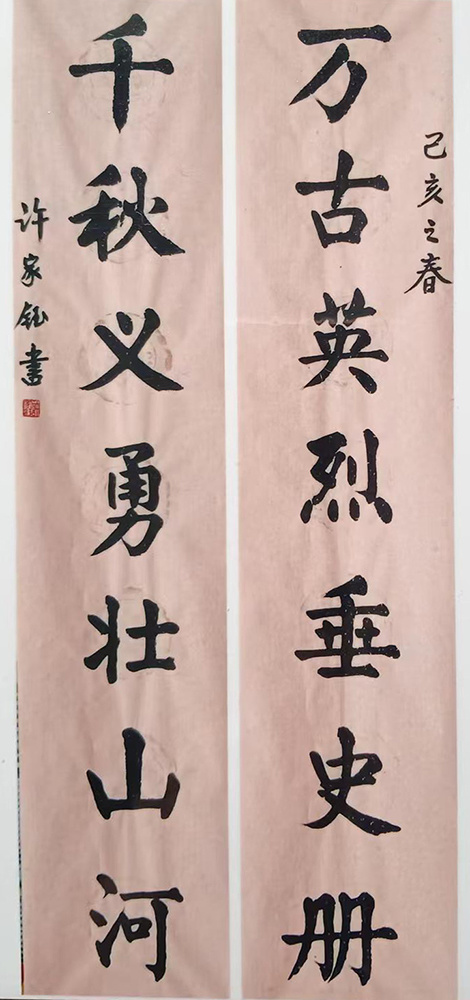 己亥之春
万古英烈垂史册
千秋义勇壮山河
许家钰书